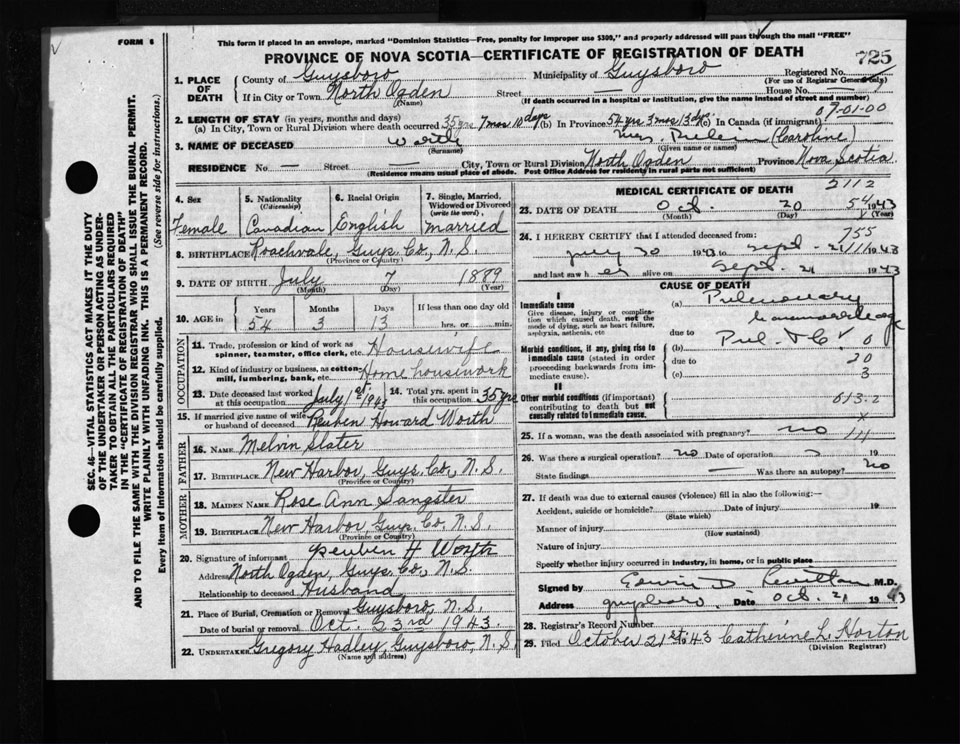 FORM 6
This form if placed in an envelope, marked "Dominion Statistics—Free, penalty for improper use $300," and properly addressed will pass through the mail "FREE"
PROVINCE OF NOVA SCOTIA—CERTIFICATE OF REGISTRATION OF DEATH
725
SEC. 46—VITAL STATISTICS ACT MAKES IT THE DUTY
OF THE UNDERTAKER OR PERSON ACTING AS UNDER-
TAKER TO OBTAIN ALL THE PARTICULARS REQUIRED
IN THE "CERTIFICATE OF REGISTRATION OF DEATH"
AND TO FILE THE SAME WITH THE DIVISION REGISTRAR WHO SHALL ISSUE THE BURIAL PERMIT.
WRITE PLAINLY WITH UNFADING INK. THIS IS A PERMANENT RECORD.
Every item of information should be carefully supplied. (See reverse side for instructions.)
1. PLACE OF DEATH
County of Guysboro Municipality of Guysboro Registered No.
(For use of Registrar General only)
If in City or Town North Ogden Street — House No. —
(Name) (If death occurred in a hospital or institution, give the name instead of street and number)
2. LENGTH OF STAY (in years, months and days) 09-01-00
(a) In City, Town or Rural Division where death occurred 35 yrs 7 mos 10 days (b) In Province 54 yrs 3 mos 13 dys (c) In Canada (if immigrant)
3. NAME OF DECEASED Worth Mrs. (Caroline)
(Surname) (Given name or names)
RESIDENCE No — Street — City, Town or Rural Division North Ogden Province Nova Scotia
(Residence means usual place of abode. Post Office Address for residents in rural parts not sufficient)
4. Sex
Female
5. Nationality
(Citizenship)
Canadian
6. Racial Origin
English
7. Single, Married,
Widowed or Divorced
(write the word)
married
8. BIRTHPLACE Roachvale, Guys. Co., N. S.
(Province or Country)
9. DATE OF BIRTH July 7 1889
(Month) (Day) (Year)
10. AGE in
Years Months Days If less than one day old
54 3 13 hrs. or min.
OCCUPATION
11. Trade, profession or kind of work as
spinner, teamster, office clerk, etc. Housewife
12. Kind of industry or business, as cotton-
mill, lumbering, bank, etc. Home housework
23. Date deceased last worked
at this occupation July 1st 1943
14. Total yrs. spent in
this occupation 35 yrs
15. If married give name of wife
or husband of deceased Reuben Howard Worth
FATHER
16. NAME Melvin Slater
17. BIRTHPLACE New Harbor, Guys. Co., N. S.
(Province or Country)
MOTHER
18. MAIDEN NAME Rose Ann Sangster
19. BIRTHPLACE New Harbor, Guys. Co. N. S.
(Province or Country)
20. Signature of informant Reuben H Worth
Address North Ogden, Guys. Co., N. S.
Relationship to deceased Husband
21. Place of Burial, Cremation or Removal Guysboro, N. S.
Date of burial or removal Oct. 23rd 1943.
22. UNDERTAKER Gregory Hadley, Guysboro, N. S.
(Name and address)
MEDICAL CERTIFICATE OF DEATH
2112
23. DATE OF DEATH Oct. 20 1943
54
(Month) (Day) (Year)
24. I HEREBY CERTIFY that I attended deceased from: 755
July 30 1943 to Sept - 21 1943
and last saw her alive on Sept. 21 1943
CAUSE OF DEATH
I
Immediate cause
Give disease, injury or complica-
tion which caused death, not the
mode of dying, such as heart failure,
asphyxia, asthenia, etc
(a) Pulmonary
haemorrhage
due to
Morbid conditions, if any, giving rise to
immediate cause (stated in order
proceeding backwards from im-
mediate cause).
(b) Pul. T.B. 0
due to 20
(c) 3
II
Other morbid conditions (if important)
contributing to death but not
causally related to immediate cause.
013-2
x
25. If a woman, was the death associated with pregnancy? no
26. Was there a surgical operation? no Date of operation 19
State findings — Was there an autopsy? no
27. If death was due to external causes (violence) fill in also the following:—
Accident, suicide or homicide? Date of injury 19
(State which)
Manner of injury
(How sustained)
Nature of injury
Specify whether injury occurred in industry, in home, or in public place
Signed by Edwin D M.D.
Address Guysboro. Date Oct. 21 1943
28. Registrar's Record Number
29. Filed October 21st 1943 Catherine L. Horton
(Division Registrar)